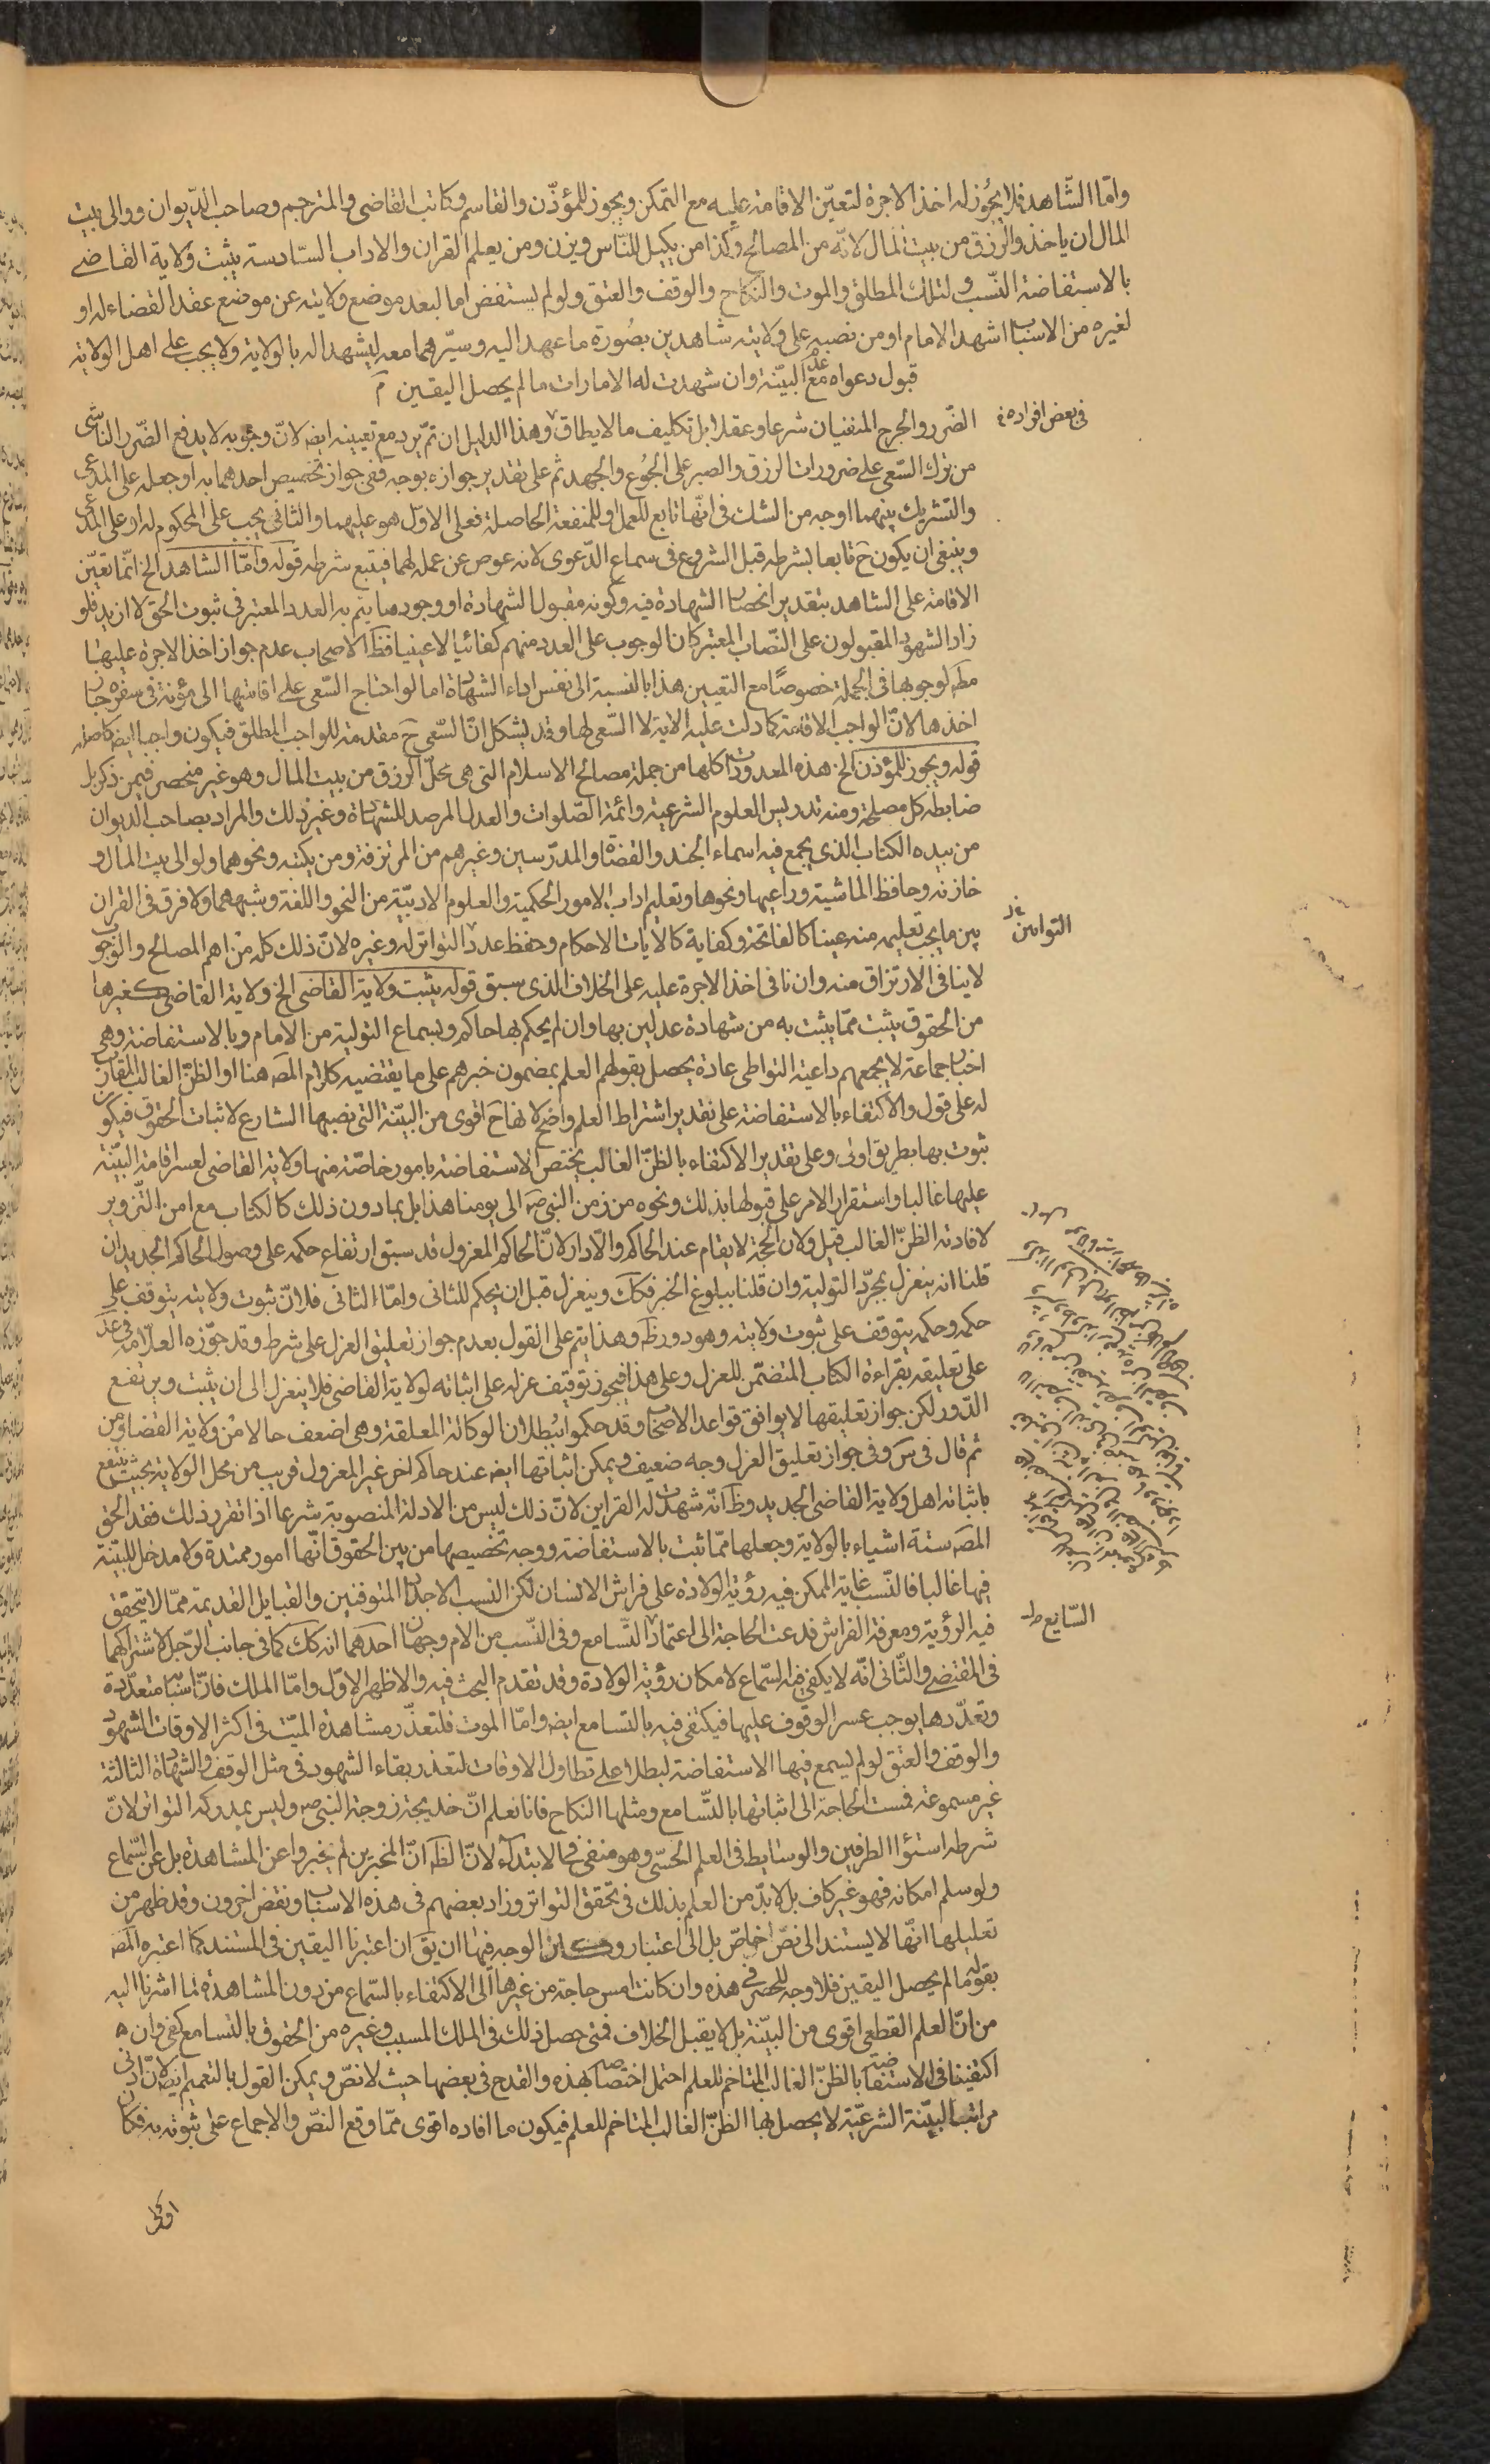 وامّا الشّاهد فلا يجُوز له اخذ الاجرة لتعيّن الاقامة عليه مع التمكن ويجوز للمؤذّن والقاسم وكاتب القاضى والمترجم وصاحب الدّيوان ووالى بيت
المال ان ياخذوا الرّزق من بيت المال لانّه من المصالح وكذا من يكيل للنّاس ويزن ومن يعلم القران والاداب السّادسة يثبت ولاية القاضے
بالاستفاضة وكذا النّسب والملك المطلق والموت والنكاح والوقف والعتق ولو لم يستفض اما لبعد موضع ولايته عن موضع عقد القضاء له او
لغيره من الاسباب اشهد الامام او من نصبه على ولايته شاهدين بصُورة ما عهد اليه وسيّرهما معه ليشهدا له بالولاية ولا يجب على اهل الولاية
قبول دعواه مع عدم البيّنة وان شهدت له الامارات ما لم يحصل اليقين م
فى بعض افراده
الضّرر والحرج المنفيان شرعا وعقلا بل تكليف ما لا يطاق وهذا الدليل ان تمّ يرد مع تعيينه ايضه لانّ وجوبه لا يدفع الضّرر الناشى
من ترك السّعى على ضرورات الرزق والصبر على الجُوع والجهد ثم على تقدير جوازه بوجه ففى جواز تخصيص احدهما به او جعله على المدعى
والتشريك بينهما اوجه من الشك فى انّها تابع للعمل او للمنفعة الحاصلة فعلى الاوّل هو عليهما والثانى يجب على المحكوم له او على المدّعى
وينبغى ان يكون ح تابعا لشرطه قبل الشروع فى سماع الدّعوى لانه عوض عن عمله لهما فيتبع شرطه قوله وامّا الشاهد الخ انّما تعيّن
الاقامة على الشاهد بتقدير انحصار الشهادة فيه وكونه مقبول الشهادة او وجود ما يتم به العدد المعتبر فى ثبوت الحق لا ازيد فلو
زاد الشهود المقبولون على النّصاب المعتبر كان الوجوب على العدد منهم كفائيا لا عينيا فظ الاصحاب عدم جواز اخذ الاجرة عليها
مطّ لوجوبها فى الجملة خصوصًا مع التعيين هذا بالنسبة الى نفس اداء الشهادة اما لو احتاج السّعى على اقامتها الى مؤنة فى سفر جاز
اخذها لانّ الواجب الاقامة كما دلت عليه الاية لا السّعى لها وقد يشكل انّ السّعى ح مقدمة للواجب المطلق فيكون واجبا ايضه كاصله
قوله ويجوز للمؤذن الخ هذه المعدودات كلها من جملة مصالح الاسلام التى هى محلّ الرزق من بيت المال وهو غير منحصر فيمن ذكر بل
ضابطه كل مصلحة ومنه تدريس العلوم الشرعية وائمة الصّلوات والعدل المرصد للشهادة وغير ذلك والمراد بصاحب الديوان
من بيده الكتاب الذى يجمع فيه اسماء الجند والقضاة والمدرّسين وغيرهم من المرتزقة ومن يكتبه ونحوهما ولوالى بيت المال و
خازنه وحافظ الماشية وراعيها ونحوها وتعليم اداب الامور الحكمية والعلوم الادبيّة من النحو واللغة وشبههما ولا فرق فى القران
التواتر
بين ما يجب تعليمه منه عينا كالفاتحة وكفاية كالايات الاحكام وحفظ عدد التواتر له وغيره لانّ ذلك كله من اهم المصالح والوجوب
لا ينافى الارتزاق منه وان نافى اخذ الاجرة عليه على الخلاف الذى سبق قوله يثبت ولاية القاضى الخ ولاية القاضى كغيرها
من الحقوق يثبت ممّا يثبت به من شهادة عدلين بها وان لم يحكم بها حاكم وبسماع التولية من الامام وبالاستفاضة وهى
اخبار جماعة لا يجمعهم داعية التواطى عادة يحصل بقولهم العلم بمضمون خبرهم على ما يقتضيه كلام المصَ هنا او الظنّ الغالب المقارن
له على قول والاكتفاء بالاستفاضة على تقدير اشتراط العلم واضح لانها ح اقوى من البيّنة التى نصبها الشارع لاثبات الحقوق فيكون
ثبوت بها بطريق اولى وعلى تقدير الاكتفاء بالظنّ الغالب يختص الاستفاضة بامور خاصّة منها ولاية القاضى لعسر اقامة البيّنة
عليها غالبا واستقرار الامر على قبولها بذلك ونحوه من زمن النبى صَ الى يومنا هذا بل بما دون ذلك كالكتاب مع امن التّزوير
لافادته الظنّ الغالب قيل ولان الحجّة لا يقام عند الحاكم والّا دار لانّ الحاكم المعزول قد سبق ارتفاع حكمه على وصول الحاكم الجديد ان
قلنا انه ينعزل بمجرّد التولية وان قلنا ببلوغ الخبر فكك وينعزل قبل ان يحكم للثانى وامّا الثانى فلانّ ثبوت ولايته يتوقف على
حكمه وحكمه يتوقف على ثبوت ولايته وهو دور ظَ وهذا يتم على القول بعدم جواز تعليق العزل على شرط وقد جوّزه العلّامة فى عدَ
على تعليقه بقراءة الكتاب المتضمّن للعزل وعلى هذا فيجوز توقيف عزله على اثباته لولاية القاضى فلا ينعزل الى ان يثبت ويرتفع
الدّور لكن جواز تعليقها لا يوافق قواعد الاصحاب وقد حكموا ببطلان الوكالة المعلقة وهى اضعف حالا من ولاية القضاء ومن
ثم قال فى سَ وفى جواز تعليق العزل وجه ضعيف ويمكن اثباتها ايضه عند حاكم اخر غير المعزول قريب من محل الولاية بحيث ينتفع
باثباته اهل ولاية القاضى الجديد وظَ انّه شهدت له القراين لانّ ذلك ليس من الادلة المنصوبة شرعا اذا تقرر ذلك فقد الحق
المصَ ستة اشياء بالولاية وجعلها ممّا ثبت بالاستفاضة ووجه تخصيصها من بين الحقوق انّها امور ممتدة ولا مدخل للبيّنة
فيها غالبا فالنّسب غاية الممكن فيه رؤية الولادة على فراش الانسان لكن النسب الى الاجداد المتوفين والقبايل القديمة ممّا لا يتحقق
التسامع ط
فيه الرؤية ومعرفة الفراش فدعت الحاجة الى اعتماد التّسامع وفى النّسب من الام وجهان احدهما انه كك كما فى جانب الرّجل لاشتراكهما
فى المقتضى والثّانى انّه لا يكفى فيه السّماع لامكان رؤية الولادة وقد تقدم البحث فيه والاظهر الاوّل وامّا الملك فلانّ اسبابه متعدّدة
وتعدّدها يوجب عسر الوقوف عليها فيكتفى فيه بالتسامع ايضه وامّا الموت فلتعذّر مشاهدة الميّت فى اكثر الاوقات للشهود
والوقف والعتق لو لم يسمع فيها الاستفاضة لبطلا على تطاول الاوقات لتعذر بقاء الشهود فى مثل الوقف والشهادة الثالثة
غير مسموعة فمست الحاجة الى اثباتها بالتّسامع ومثلها النكاح فانا نعلم انّ خديجة زوجة النبى ص وليس بمدركه التواتر لانّ
شرطه استواء الطرفين والوسايط فى العلم الحسّى وهو منفى فى الابتداء لانّ الظَ انّ المخبرين لم يخبروا عن المشاهدة بل عن السّماع
ولو سلم امكانه فهو غير كاف بل لا بدّ من العلم بذلك فى تحقق التواتر وزاد بعضهم فى هذه الاسباب ونقض اخرون وقد ظهر من
تعليلها انّها لا يستند الى نصّ خاصّ بل الى اعتبار الوجه فيها ان يقَ ان اعتبرنا اليقين فى المستند كما اعتبره المصَ
بقوله ما لم يحصل اليقين فلا وجه للحصر فى هذه وان كانت امس حاجة من غيرها الى الاكتفاء بالسّماع من دون المشاهدة لما اشرنا اليه
من انّ العلم القطعى اقوى من البيّنة بل لا يقبل الخلاف فمتى حصل ذلك فى الملك المسبب وغيره من الحقوق بالتسامع كفى وان
اكتفينا فى الاستفاضة بالظنّ الغالب المتاخم للعلم احتمل اختصاصه بهذه والقدح فى بعضها حيث لا نصّ ويمكن القول بالتعميم ايضه لانّ ادنى
مراتب البيّنة الشرعيّة لا يحصل بها الظنّ الغالب المتاخم للعلم فيكون ما افاده اقوى ممّا وقع النصّ والاجماع على ثبوته به فكان
اولى